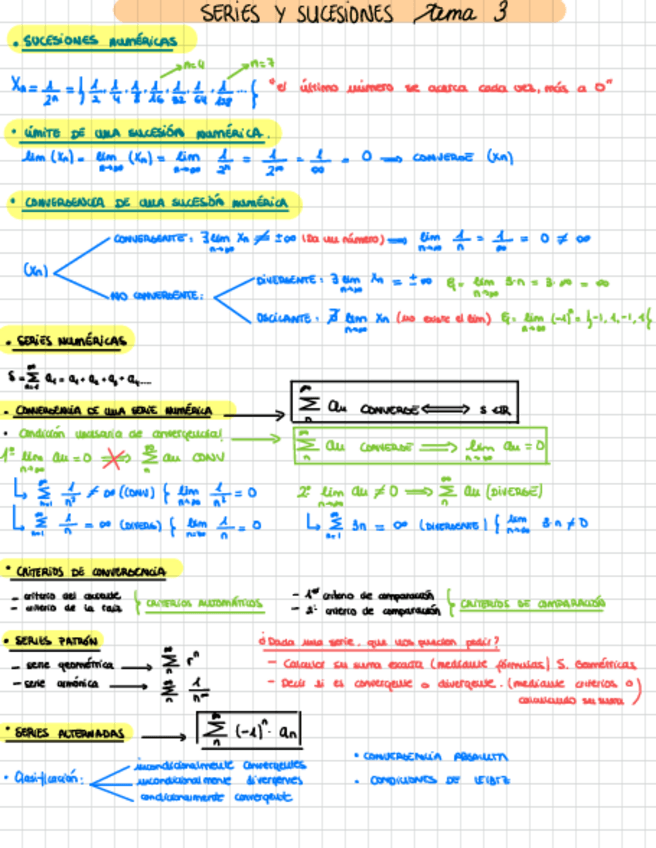 SERIES Y SUCESIONES Tema 3
• SUCESIONES NUMÉRICAS
n=4 n=7
Xn = 1/2ⁿ = { 1/2, 1/4, 1/8, 1/16, 1/32, 1/64, 1/128 ... { "el último número se acerca cada vez, más a 0"
• LÍMITE DE UNA SUCESIÓN NUMÉRICA.
lim (Xn) = lim n→∞ (Xn) = lim n→∞ 1/2ⁿ = 1/2^∞ = 1/∞ = 0 ⟹ CONVERGE (Xn)
• CONVERGENCIA DE UNA SUCESIÓN NUMÉRICA
CONVERGENTE: ∃ lim n→∞ Xn ≠ ±∞ (Da un número) ⟹ lim n→∞ 1/n = 1/∞ = 0 ≠ ∞
(Xn)
NO CONVERGENTE:
DIVERGENTE: ∃ lim n→∞ Xn = ±∞ Ej = lim n→∞ 3·n = 3·∞ = ∞
OSCILANTE: ∄ lim n→∞ Xn (no existe el lim) Ej = lim n→∞ (-1)ⁿ = {-1, 1, -1, 1{
• SERIES NUMÉRICAS
S = ∞ Σ n=1 a₁ = a₁ + a₂ + a₃ + a₄....
• CONVERGENCIA DE UNA SERIE NUMÉRICA → ∞ Σ n an CONVERGE ⟺ S ∈ IR
• Condición necesaria de convergencia! → ∞ Σ n an CONVERGE ⟹ lim n→∞ an = 0
1º lim n→∞ an = 0 ⇏ ∞ Σ n an CONV
↳ ∞ Σ n=1 1/n² ≠ ∞ (CONV) { lim n→∞ 1/n² = 0 2º lim n→∞ an ≠ 0 ⟹ ∞ Σ n an (DIVERGE)
↳ ∞ Σ n=1 1/n = ∞ (DIVERG) { lim n→∞ 1/n = 0 ↳ ∞ Σ n=1 3n = ∞ (DIVERGENTE) { lim n→∞ 3·n ≠ 0
• CRITERIOS DE CONVERGENCIA
— criterio del cociente — 1er criterio de comparación
— criterio de la raiz } CRITERIOS AUTOMÁTICOS — 2º criterio de comparación } CRITERIOS DE COMPARACIÓN
• SERIES PATRÓN ¿Dada una serie, que nos pueden pedir?
— serie geométrica → ∞ Σ n rⁿ — Calcular su suma exacta (mediante fórmulas) S. Geométricas
— serie armónica → ∞ Σ n 1/nᵅ — Decir si es convergente o divergente. (mediante criterios o
calculando su suma)
• SERIES ALTERNADAS → ∞ Σ n (-1)ⁿ · an
• Clasificación:
incondicionalmente convergentes
incondicionalmente divergentes
condicionalmente convergente
• CONVERGENCIA ABSOLUTA
• CONDICIONES DE LEIBTZ